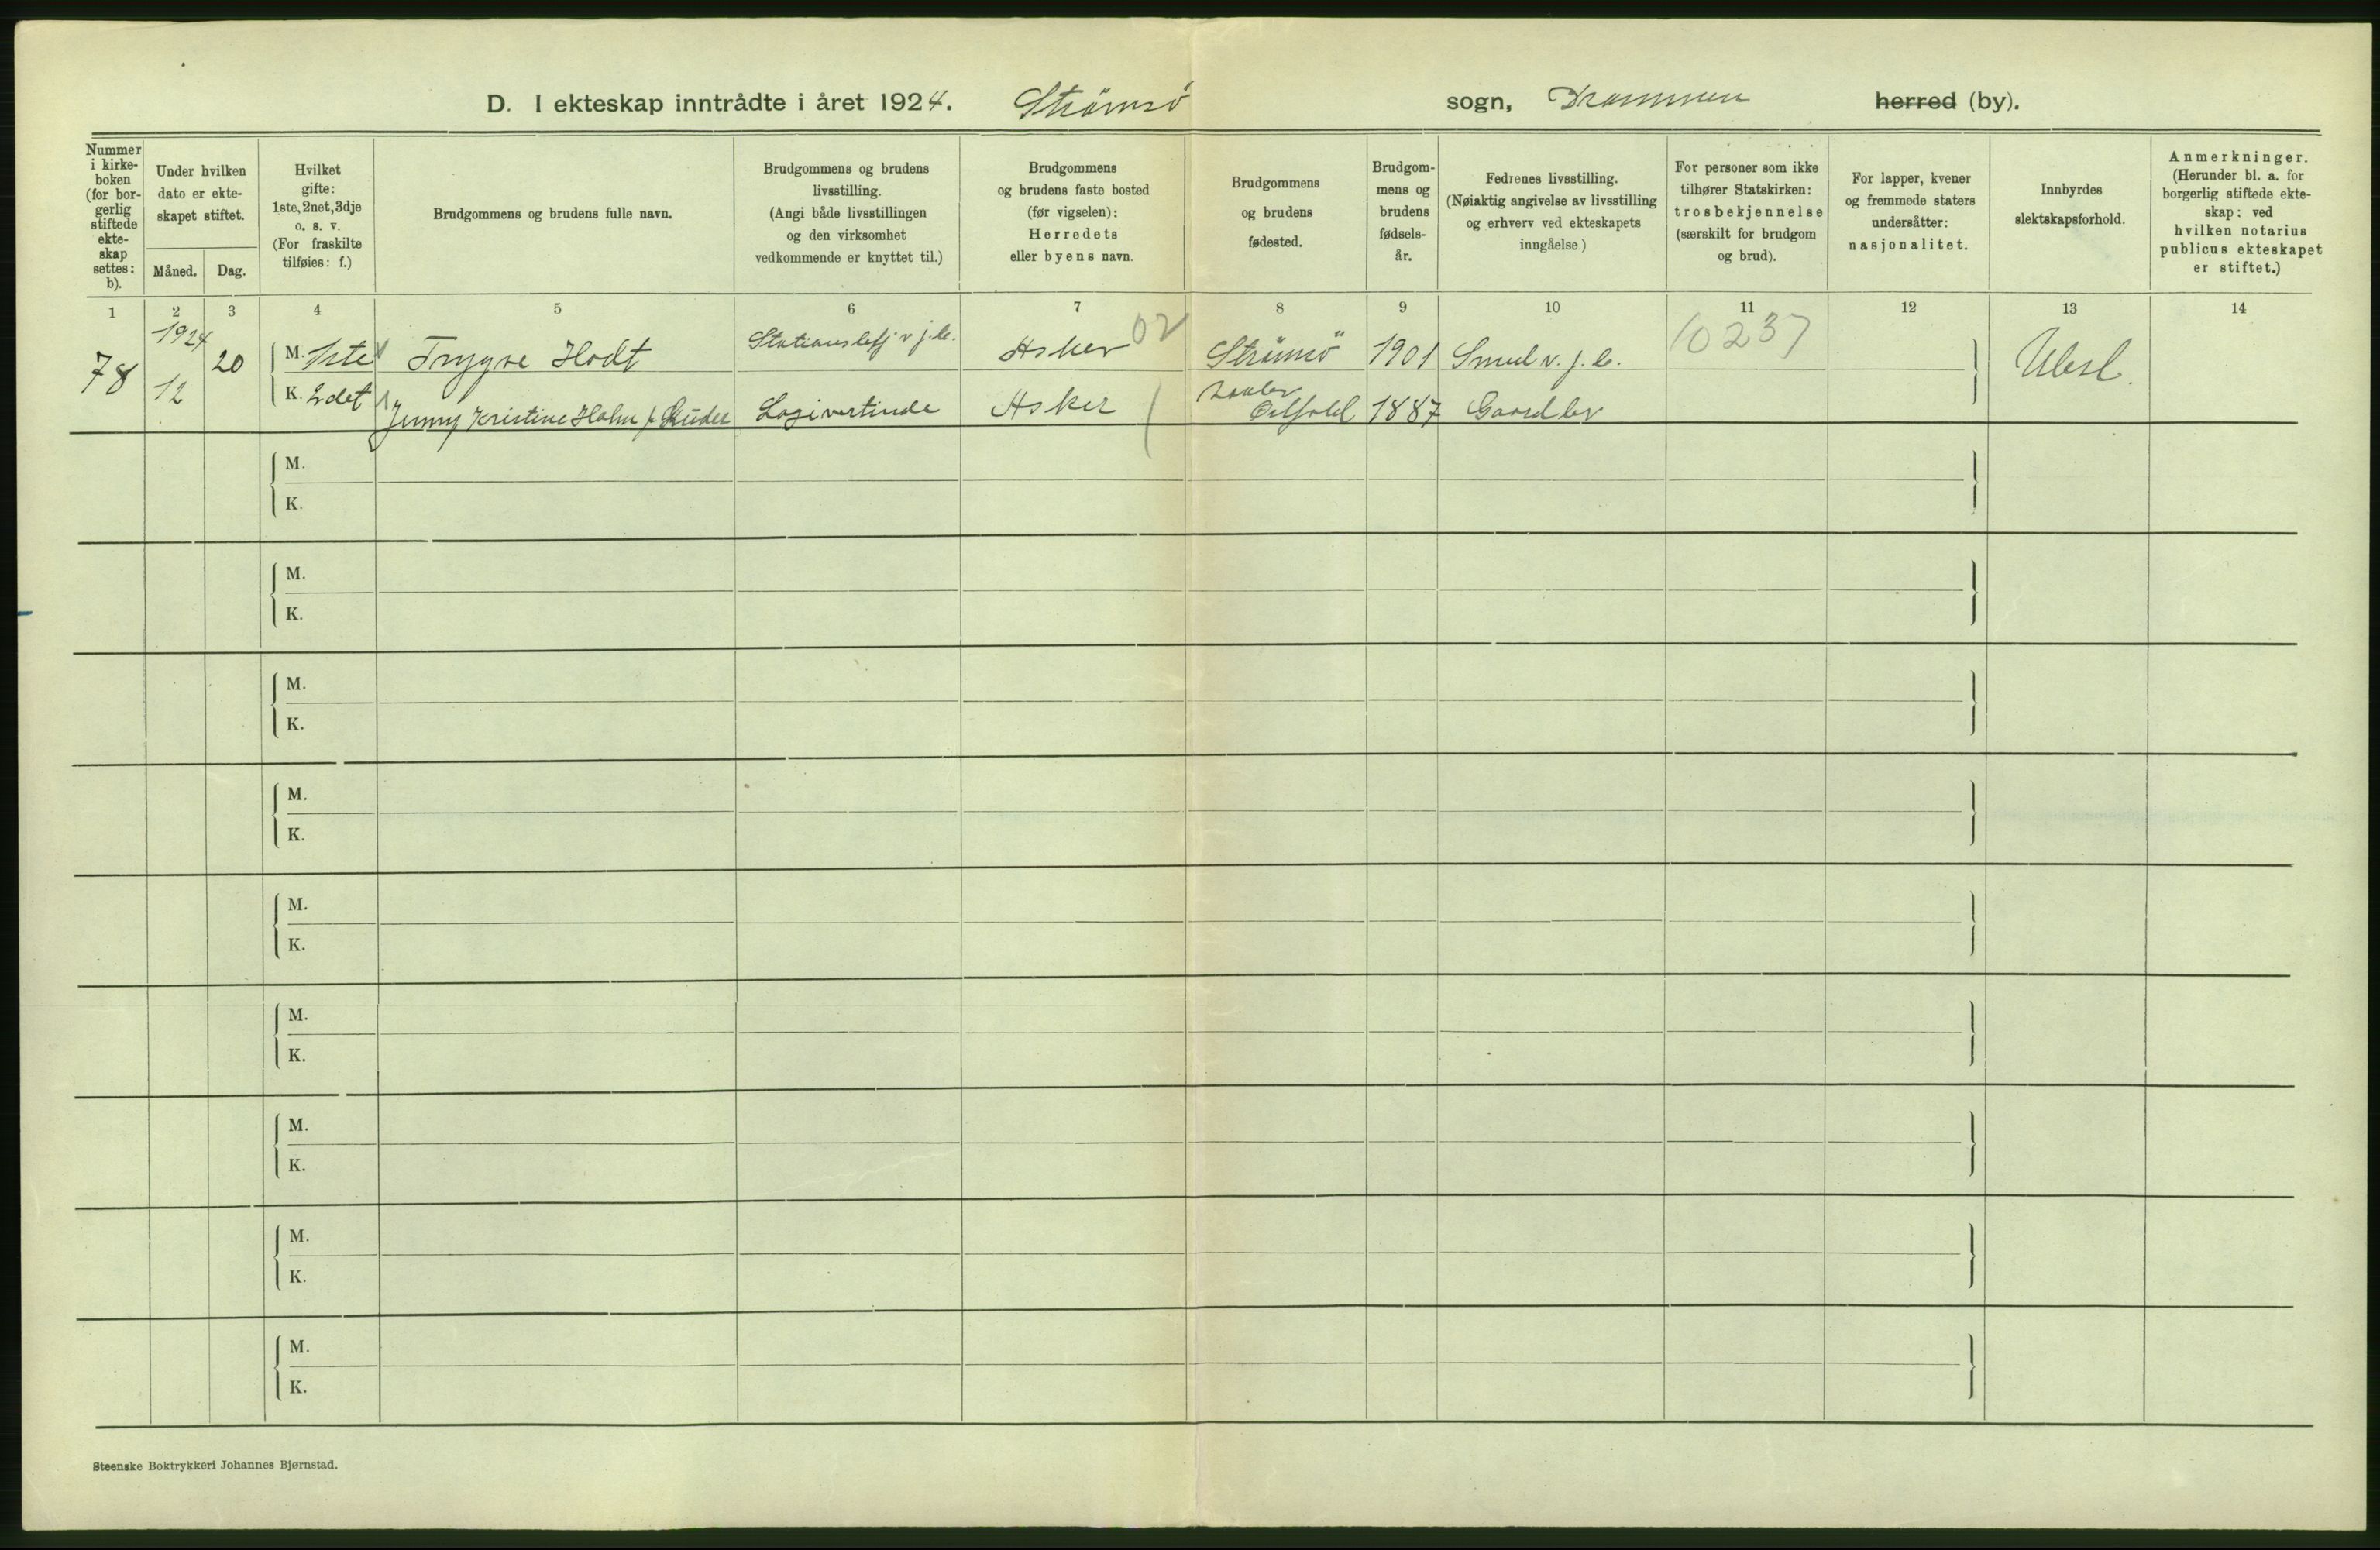 D. I ekteskap inntrådte i året 1924. Strömsö sogn, Drammen herred (by).
Nummer i kirke-boken (for bor-gerlig stiftede ekte-skap settes: b).
Under hvilken dato er ekte-skapet stiftet.
Måned. Dag.
Hvilket gifte: 1ste, 2net, 3dje o. s. v. (For fraskilte tilføies: f.)
Brudgommens og brudens fulle navn.
Brudgommens og brudens livsstilling. (Angi både livsstillingen og den virksomhet vedkommende er knyttet til.)
Brudgommens og brudens faste bosted (før vigselen): Herredets eller byens navn.
Brudgommens og brudens fødested.
Brudgom-mens og brudens fødsels-år.
Fedrenes livsstilling. (Nøiaktig angivelse av livsstilling og erhverv ved ekteskapets inngåelse)
For personer som ikke tilhører Statskirken: trosbekjennelse (særskilt for brudgom og brud).
For lapper, kvener og fremmede staters undersåtter: nasjonalitet.
Innbyrdes slektskapsforhold.
Anmerkninger. (Herunder bl. a. for borgerlig stiftede ekte-skap: ved hvilken notarius publicus ekteskapet er stiftet.)
1 2 3 4 5 6 7 8 9 10 11 12 13 14
78 1924 12 20
M. 1ste Trygve Hodt v. j.b. Asker 02 Strömsö 1901 Smed v. j. b. 10237 Ubesl.
K. 2det Jenny Kristine Holm f. Logivertinde Asker 1887 Gaardbr
M.
K.
M.
K.
M.
K.
M.
K.
M.
K.
M.
K.
M.
K.
M.
K.
M.
K.
Steenske Boktrykkeri Johannes Bjørnstad.